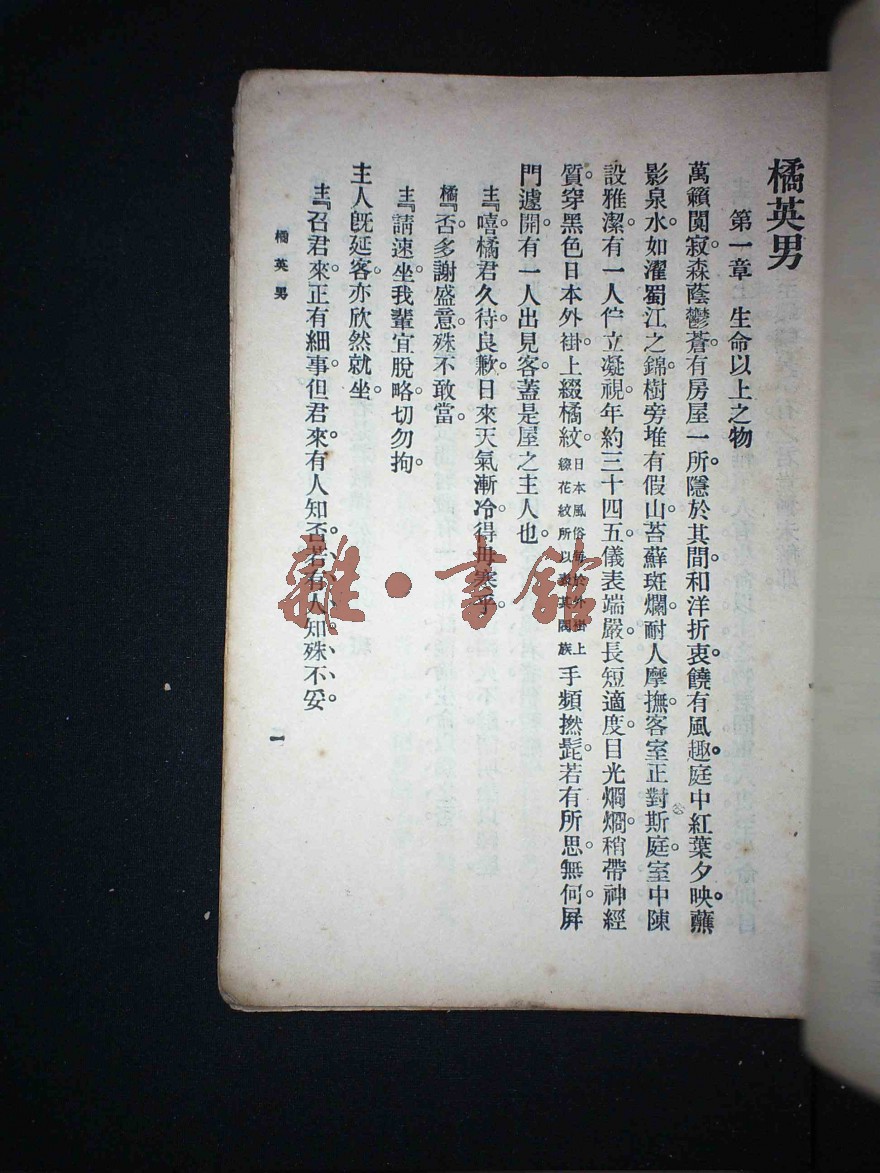 橘英男
第一章 生命以上之物
萬籟闃寂。森蔭鬱蒼。有房屋一所。隱於其間。和洋折衷。饒有風趣。庭中紅葉夕映。蘸
影泉水。如濯蜀江之錦。樹旁堆有假山。苔蘇斑爛。耐人摩撫。客室正對斯庭。室中陳
設雅潔。有一人伫立凝視。年約三十四五。儀表端嚴。長短適度。目光燗燗。稍帶神經
質。穿黑色日本外掛。上綴橘紋。日本風俗每於外掛上綴花紋所以表其閥族手頻撚髭。若有所思。無何。屏
門遽開。有一人出見客。蓋是屋之主人也。
主『嘻。橘君。久待良歉。日來天氣漸冷。得毋寒乎。
橘『否。多謝盛意。殊不敢當。
主『請速坐。我輩宜脫略。切勿拘。
主人旣延客。亦欣然就坐。
主『召君來。正有細事。但君來有人知否。若有人知。殊不妥
橘英男
一
雜·書館